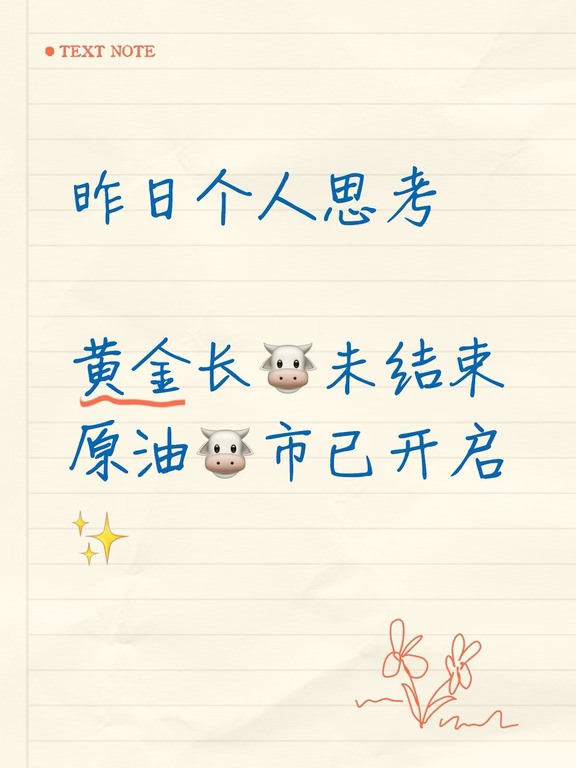 TEXT NOTE
昨日个人思考
黄金长🐮未结束
原油🐮市已开启
✨